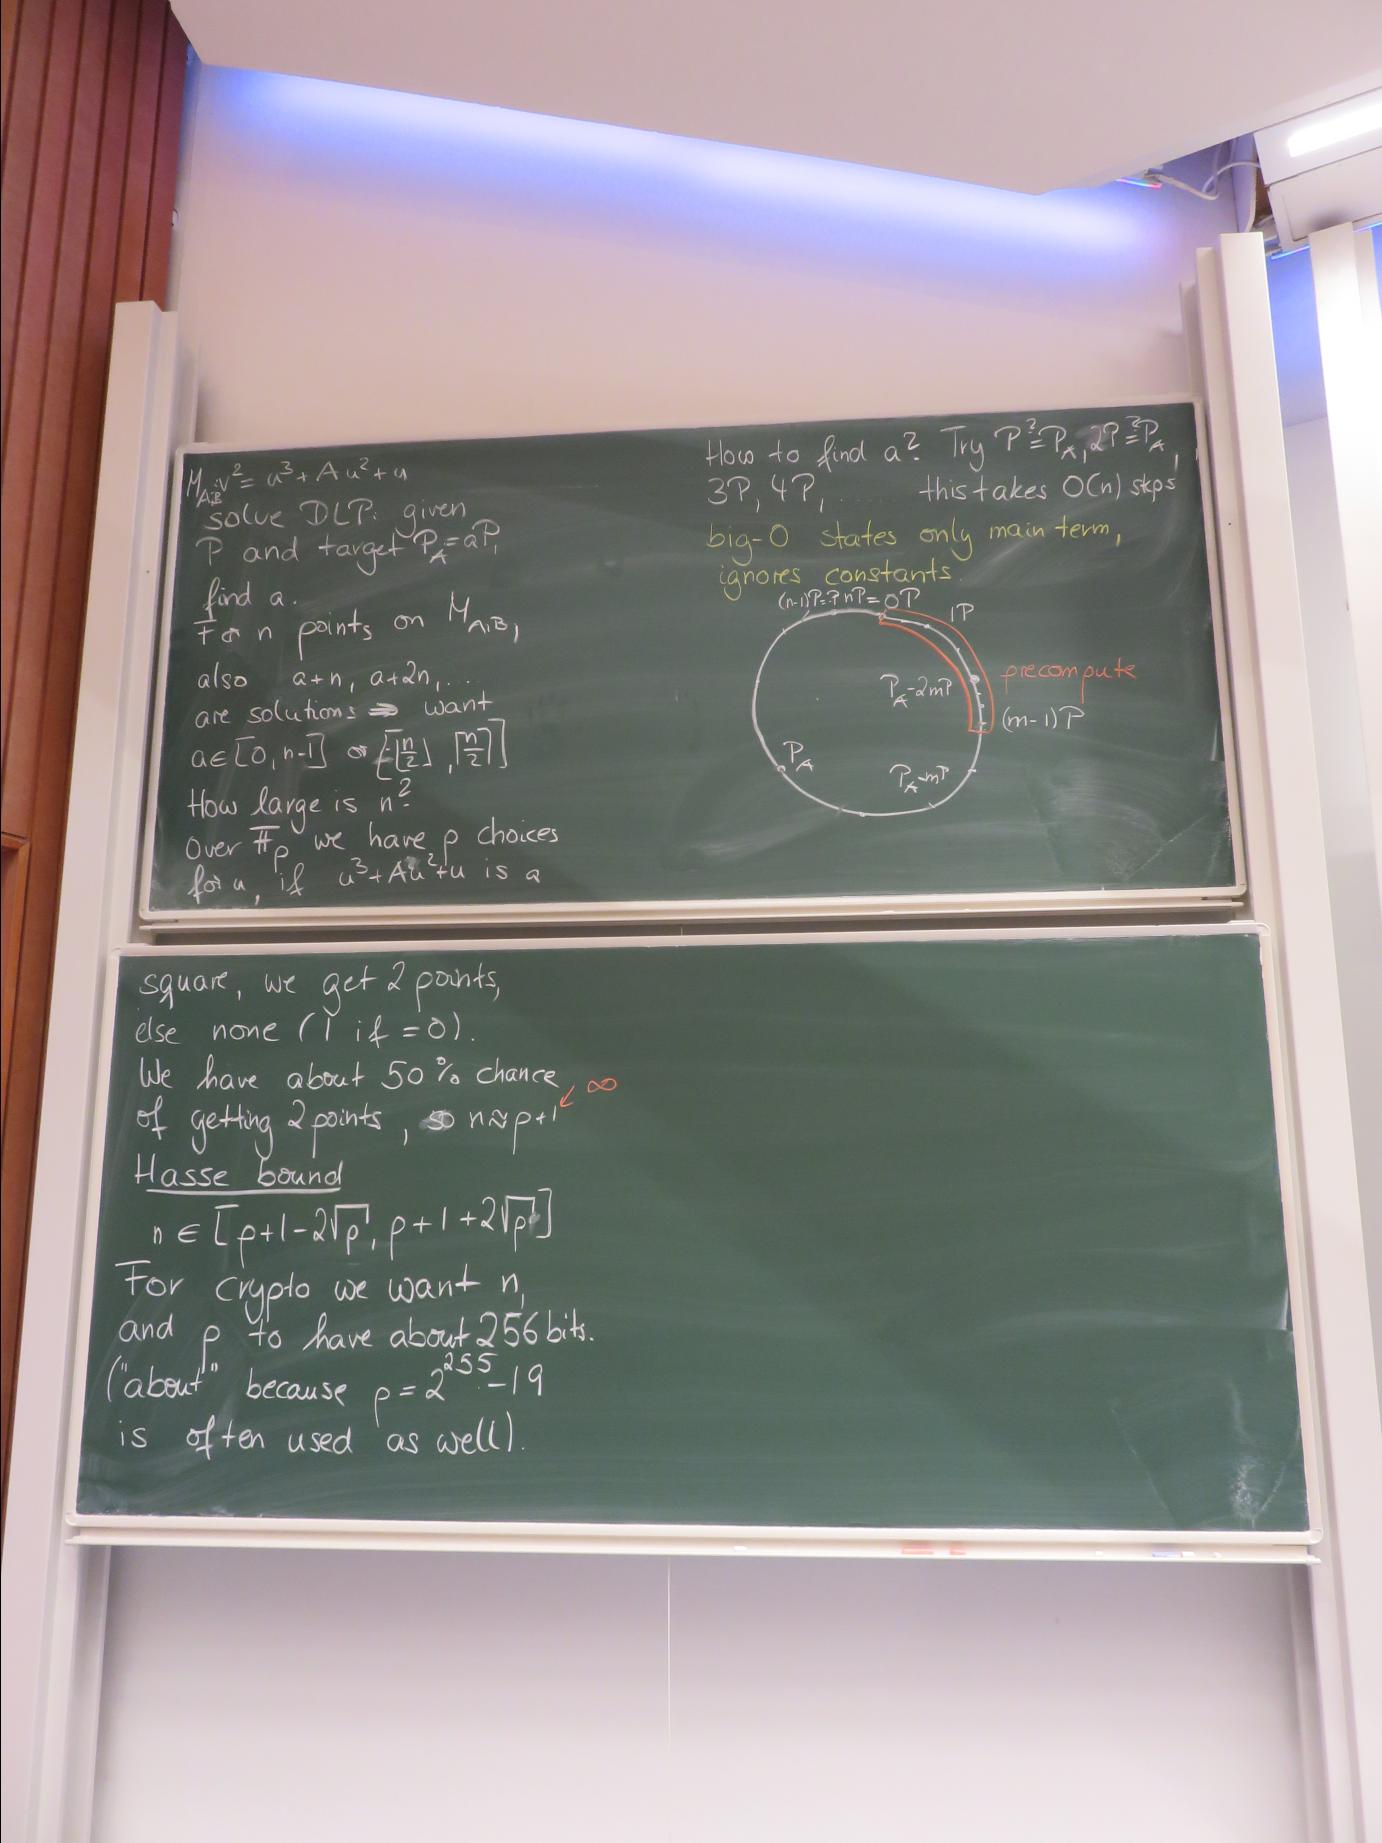 M_{A,B}: v² = u³ + Au² + u
solve DLP: given
P and target P_A = aP,
find a.
For n points on M_{A,B},
also a+n, a+2n, ...
are solutions ⇒ want
a ∈ [0, n-1] or [-⌊n/2⌋, ⌈n/2⌉]
How large is n?
Over 𝔽_p we have p choices
for u, if u³ + Au² + u is a
square, we get 2 points,
else none (1 if = 0).
We have about 50% chance
of getting 2 points, so n ≈ p+1 ↙ ∞
Hasse bound
n ∈ [p+1-2√p, p+1+2√p]
For crypto we want n,
and p to have about 256 bits.
("about" because p = 2^255 - 19
is often used as well).
How to find a? Try P ?= P_A, 2P ?= P_A,
3P, 4P, ...... this takes O(n) steps
big-O states only main term,
ignores constants.
nP = 0P
1P
precompute
P_A-2mP
(m-1)P
P_A
P_A-mP